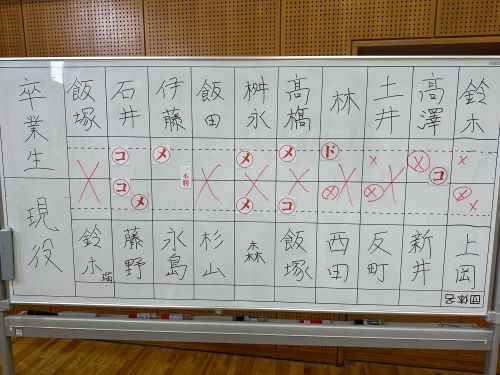 卒業生
飯塚
石井
伊藤
飯田
桝永
髙橋
林
土井
高澤
鈴木
コ
メ
一本勝
メ
メ
ド
コ
コ
メ
メ
コ
現役
鈴木瑠
藤野
永島
杉山
森
飯塚
西田
反町
新井
上岡
団体名